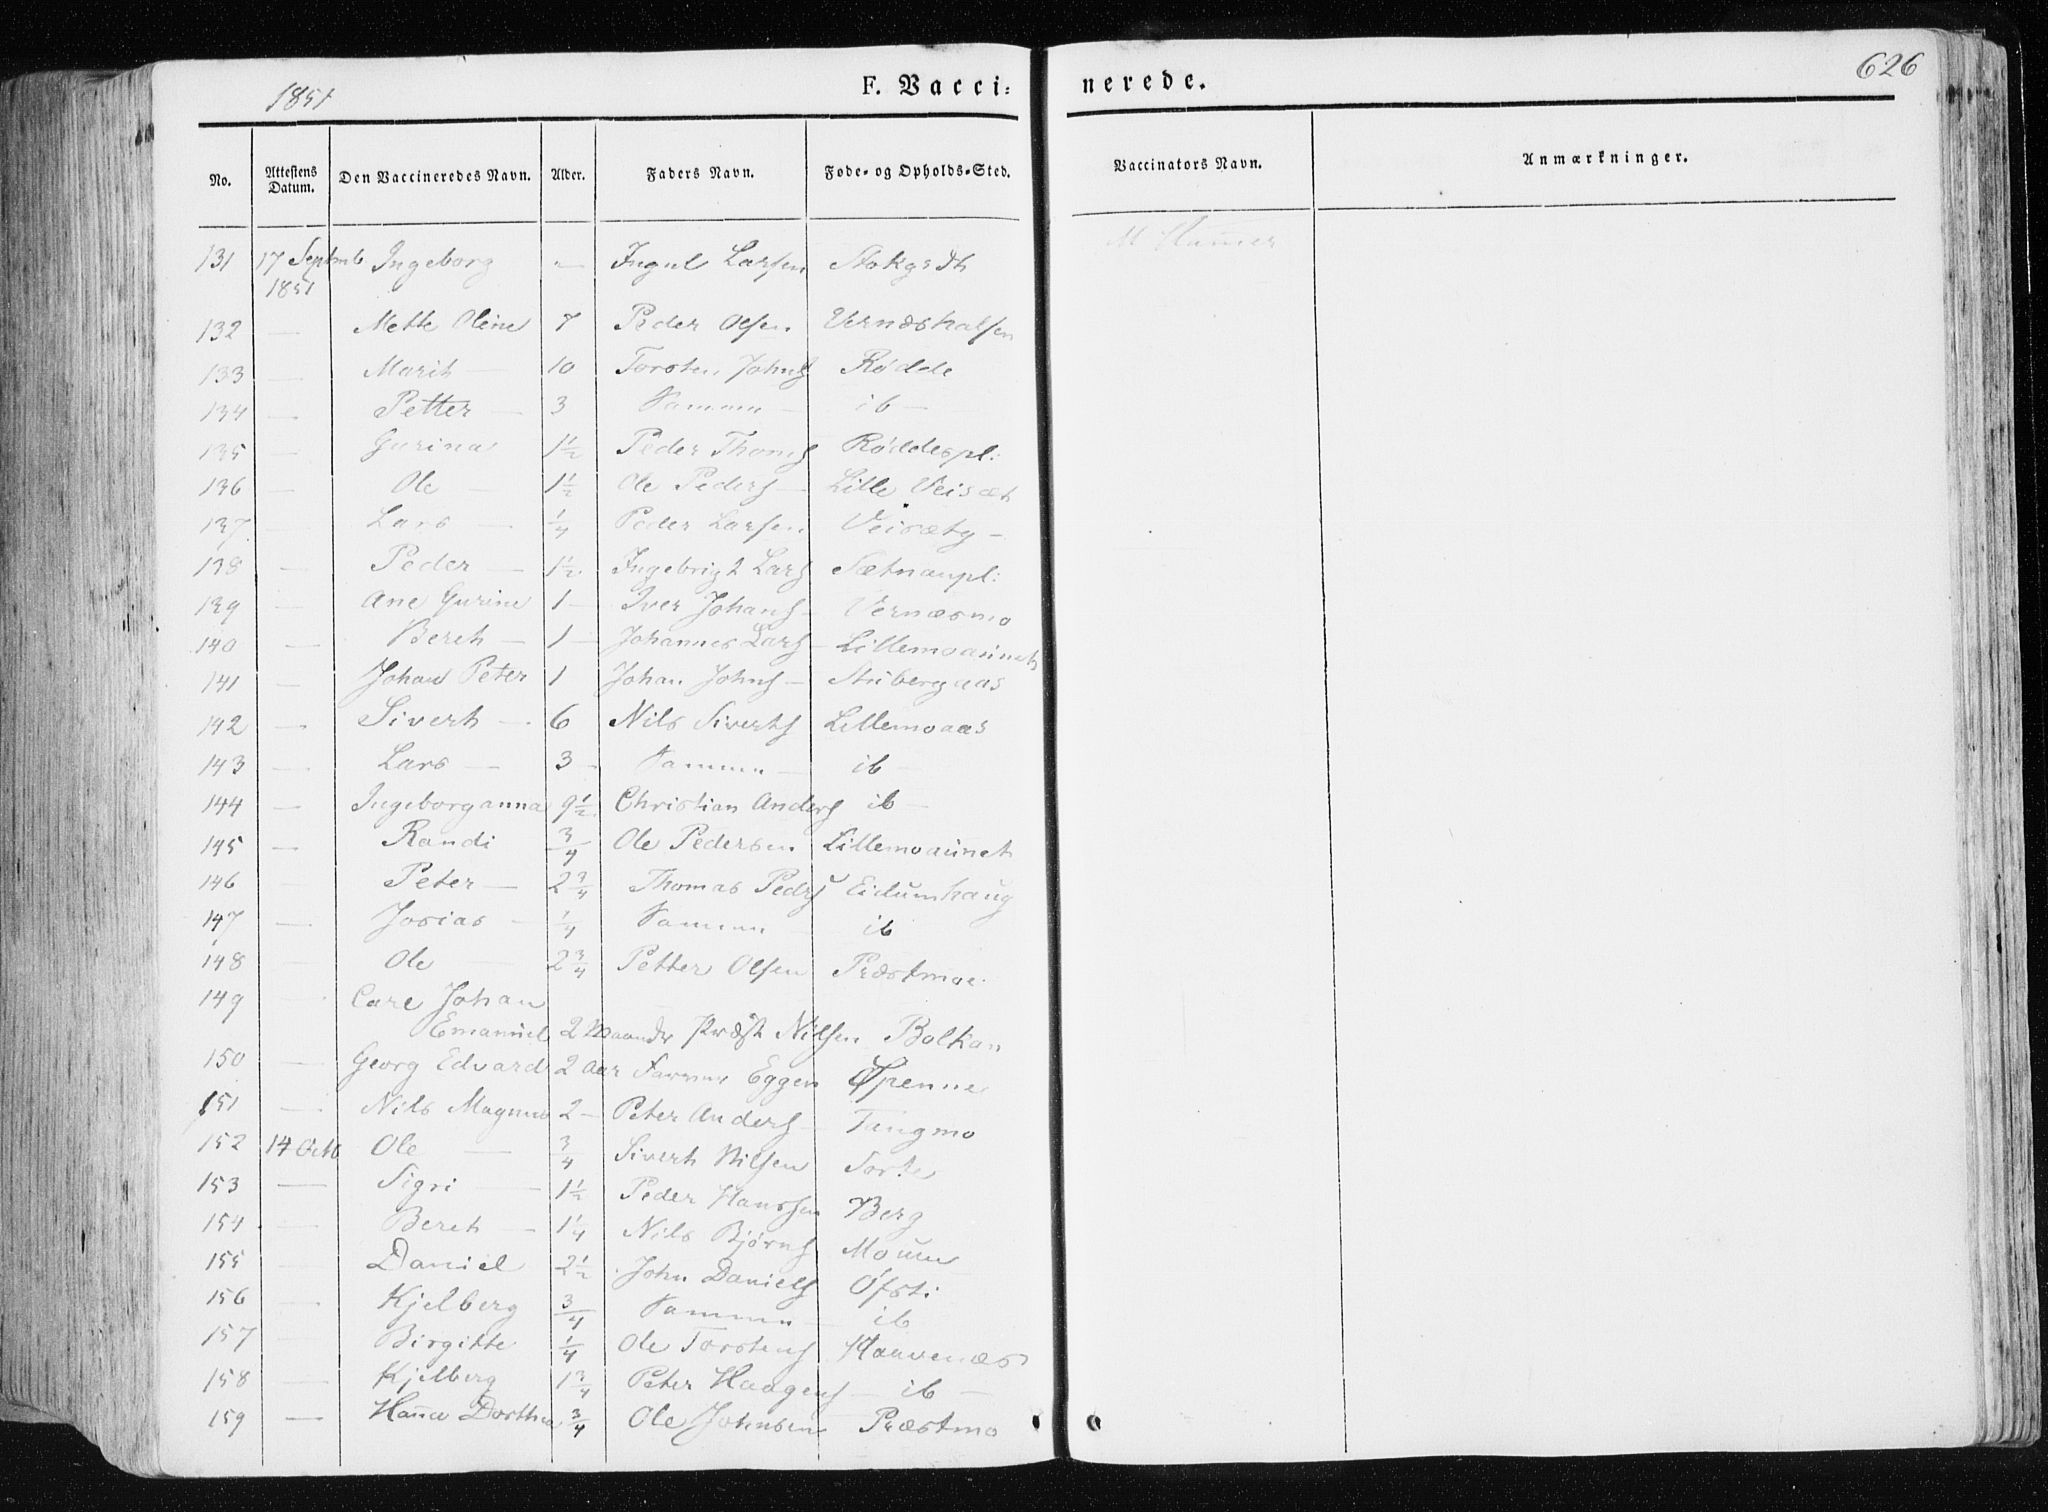 1851
F. Vacci: nerede.
626
No. Attestens Datum. Den Vaccineredes Navn. Alder. Faders Navn. Føde- og Opholds-Sted. Vaccinators Navn. Anmærkninger.
131 17 Septmb Ingeborg — Ingul Larsen M Hammer
1851
132 — Mette Oline 7 Peder Olsen Vernæshalsen
133 — Marit — 10 Torsten Johns Rødde
134 — Petter — 3 Samme — ib —
135 — Gurina 1½ Peder Thoms Røddespl:
136 — Ole — 1½ Ole Peders — Lille Veisæt
137 — Lars — ¼ Peder Larsen Veisætg —
138 — Peder — 1½ Ingebrigt Lars Sætnanpl:
139 — Ane Gurine 1 — Iver Johans — Vernæsmo
140 — Bereth — 1 — Johannes Lars — Lillemoaunet
141 — Johan Peter 1 Johan Johns — Stubergaas
142 — Sivert — 6 Nils Siverts Lillemoaas
143 — Lars — 3 — Samme — ib —
144 — Ingeborganna 9½ Christian Anders ib —
145 — Randi ¾ Ole Pedersen Lillemoaunet
146 — Peter — 2¾ Thomas Peders Eidumhaug
147 — Josias — ¼ Samme — ib
148 — Ole — 2¾ Petter Olsen Præstmoe
149 — Carl Johan
Emanuel 2 Maander Præst Nilsen Balkan
150 — Georg Edvard 2 Aar Eggen Øpenne
151 — Nils Magnus 2 — Peter Anders — Tangmo
152 14 Octb Ole — ¾ Sivert Nilsen Sorte
153 — Sigri — 1½ Peder Hanssen Berg
154 — Bereth — 1¼ Nils Bjørns Mouen
155 — Daniel 2½ John Daniels Øfsti
156 — Kjelberg ¾ Samme — ib
157 — Birgitte ¼ Ole Torstens Haavenæs
158 — Kjelberg 1¾ Peter Haagens — ib —
159 — Hanna Dorthea ¾ Ole Johnsen Præstmo